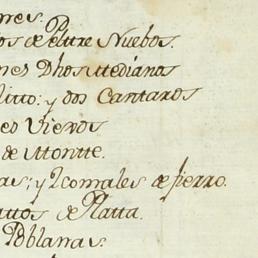 ores.
os de Peltre Nuebos.
nes Dhos Medianos
litto: y dos Cantaros
es Viexos
de Montte.
as; y 2 comales de fierro.
attos de Platta.
Poblanas.